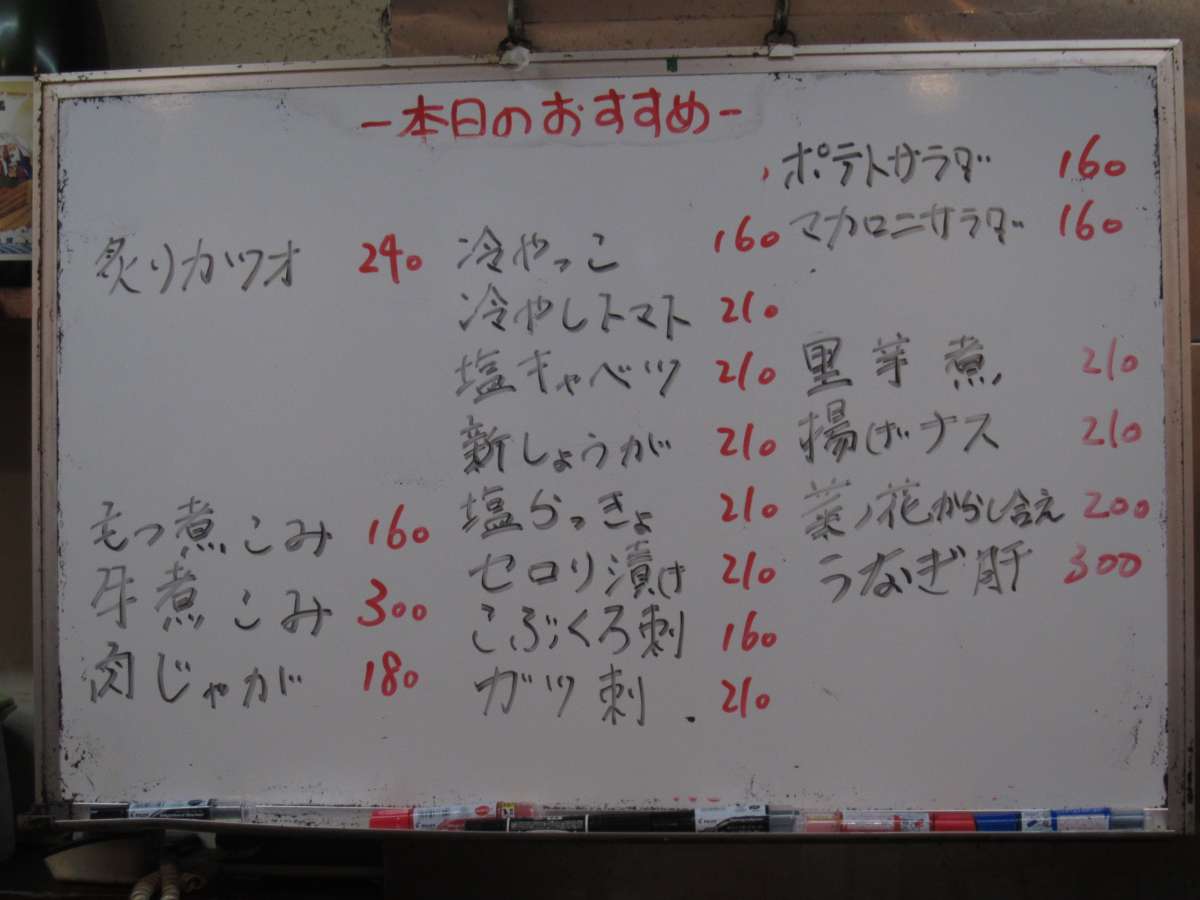 -本日のおすすめ-
炙りカツオ 240
もつ煮こみ 160
牛煮こみ 300
肉じゃが 180
冷やっこ 160
冷やしトマト 210
塩キャベツ 210
新しょうが 210
塩らっきょ 210
セロリ漬け 210
こぶくろ刺 160
ガツ刺 210
ポテトサラダ 160
マカロニサラダ 160
里芋煮 210
揚げナス 210
菜ノ花からし合え 200
うなぎ肝 300